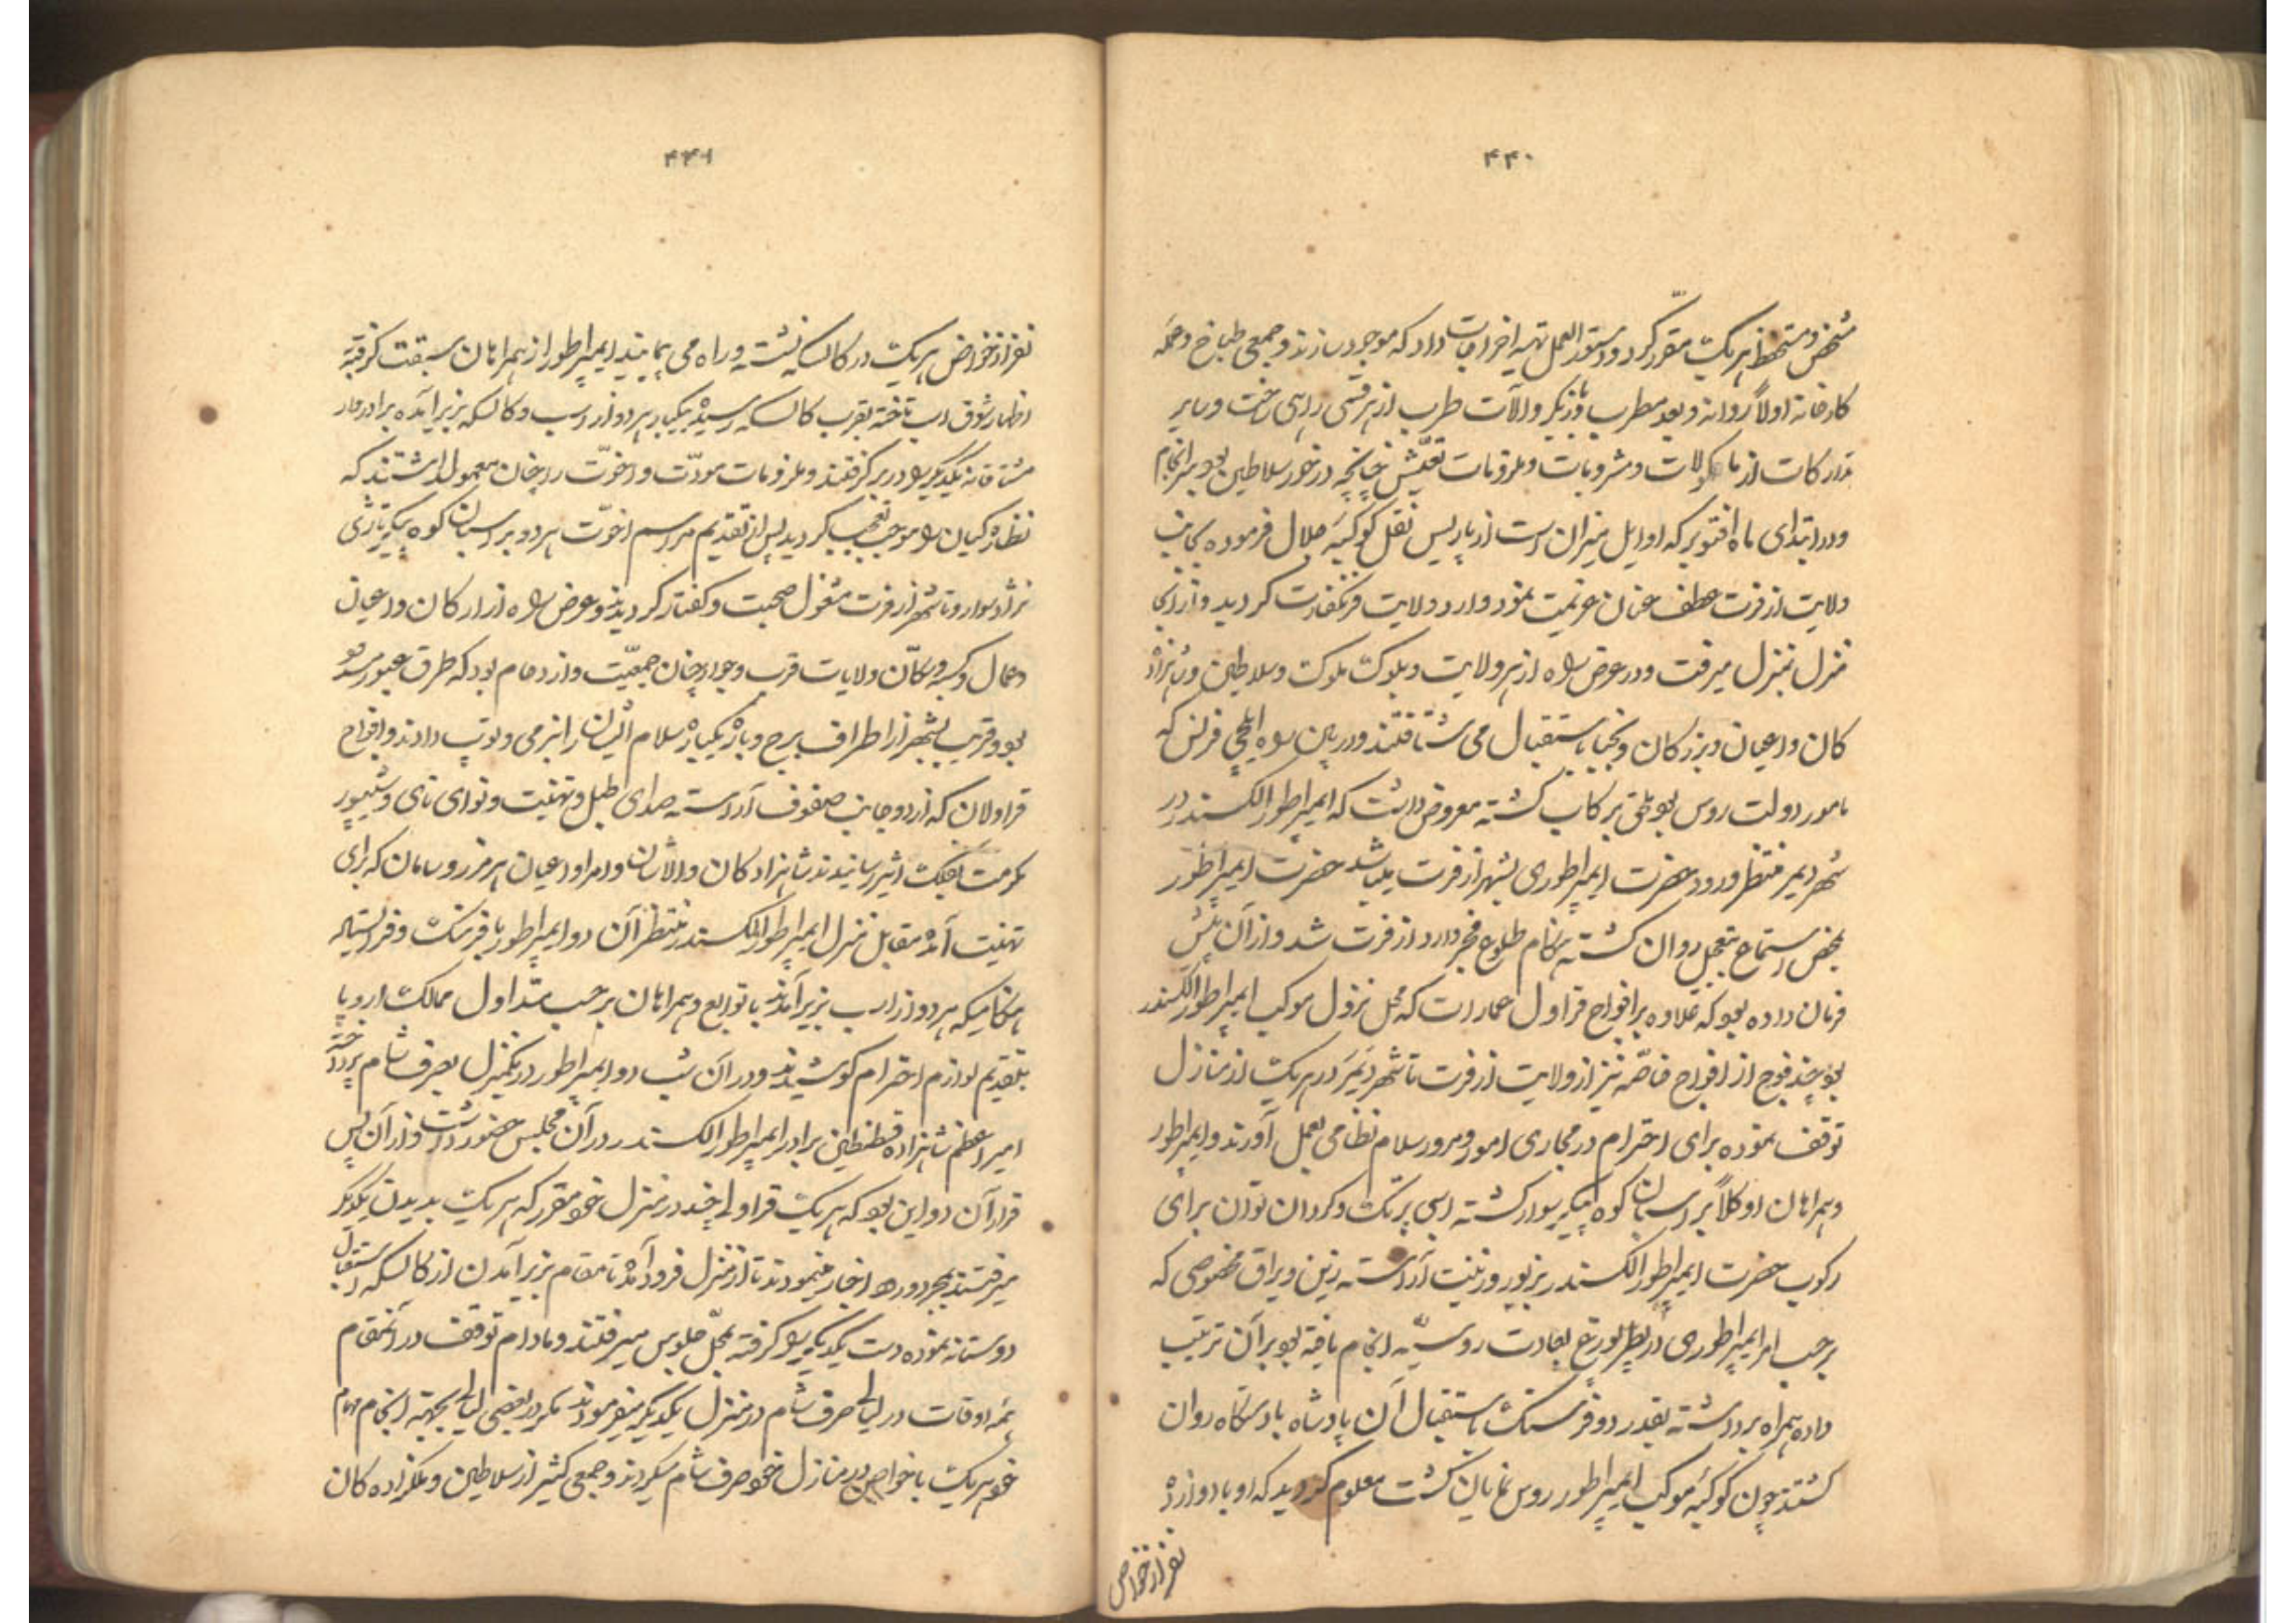 ۴۴۰
مشخص و مستحفظ هر یک مقرر کرد و دستورالعمل تهیه اخراجات داد که موجود سازند و جمعی طباخ و عمله
کارخانه اولاً روانه و بعد مطرب و بازیگر و آلات طرب از هر قسمی راهی ساخت و سایر
تدارکات از ماکولات و مشروبات و ملزومات تعیش چنانچه در خور سلاطین بود سرانجام
و در ابتدای ماه اقتوبر که اوایل میزان است از پاریس نقل کوکبه جلال فرموده بجانب
ولایت ازفرت عطف عنان عزیمت نمود وارد ولایت فرنکفارت کردید و از آنجا
منزل بمنزل میرفت و در عرض راه از هر ولایت و بلوک ملوک و سلاطین و شاهزاد
کان و اعیان و بزرکان و نجبا باستقبال می شتافتند و در بین راه ایلچی فرانس که
مامور دولت روس بود ملحق برکاب کشته معروض داشت که ایمپراطور الکسندر در
شهر دیمر منتظر ورود حضرت ایمپراطوری بشهر ازفرت میباشد حضرت ایمپراطور
بمحض استماع بتعجیل روان کشته هنکام طلوع فجر وارد ازفرت شد و از آن پیش
فرمان داده بود که علاوه بر افواج قراول عمارات که محل نزول موکب ایمپراطور الکسندر
بود چند فوج از افواج خاصه نیز از ولایت ازفرت تا شهر دیمر در هر یک از منازل
توقف نموده برای احترام در مجاری امور و مرور سلام نظامی بعمل آورند و ایمپراطور
و همراهان او کلاً بر اسبان کوه پیکر سوار کشته اسبی پرتک و کردان توان برای
رکوب حضرت ایمپراطور الکسندر بزیور و زینت آراسته زین و یراق مخصوصی که
برحسب امر ایمپراطوری در پطرپورغ بعادت روسیه انجام یافته بود بر آن ترتیب
داده همراه برداشته بقدر دو فرسنک باستقبال آن پادشاه بادستکاه روان
کشتند چون کوکبه موکب ایمپراطور روس نمایان کشت معلوم کردید که او با دوازده
نفر از خواص
۴۴۱
نفر از خواص هر یک در کالسکه نشسته و راه می پیمایند ایمپراطور از همراهان سبقت کرفته
اظهار شوق اسب تاخته بقرب کالسکه رسیده بیکبار هر دو از اسب و کالسکه بزیر آمده برادروار
مشتاقانه یکدیکر را در بر کرفتند و ملزومات مودّت و اخوّت را چنان معمول داشتند که
نظاره کیان را موجب تعجب کردید پس از تقدیم مراسم اخوّت هر دو بر اسبان کوه پیکر تازی
نژاد سوار و تا شهر ازفرت مشغول صحبت و کفتار کردیدند و عرض راه از ارکان و اعیان
و عمال و کسبه و سکّان ولایات قرب و جوار چنان جمعیّت و ازدحام بود که طرق عبور مسدود
بود و قریب بشهر از اطراف برج و باره یکباره سلام ایشان را بنرمی و توپ دادند و افواج
قراولان که از دو جانب صفوف آراسته صدای طبل و تهنیت و نوای نای و شیپور
مکرمت بفلک اثیر رسانیدند شاهزادکان والاشان و امرا و اعیان هر مرز و سامان که برای
تهنیت آمده مقابل منزل ایمپراطور الکسندر منتظر آن دو ایمپراطور بافرهنک و فر ایستاده
هنکامیکه هر دو از اسب بزیر آمدند با توابع و همراهان برحسب متداول ممالک اروپا
بتقدیم لوازم احترام کوشیدند و در آن شب دو ایمپراطور در یکمنزل بصرف شام پرداخته
امیر اعظم شاهزاده قسطنطین برادر ایمپراطور الکسندر در آن مجلس حضور داشت و از آن پس
قرار آن دو این بود که هر یک قراولی چند در منزل خود مقرر که هر یک بدیدن یکدیکر
میرفتند بمجرد ورود اخبار مینمودند تا از منزل فرود آمده تا مقام بزیر آمدن از کالسکه استقبال
دوستانه نموده دست یکدیکر را کرفته بمحل جلوس میرفتند و مادام توقف در آنمقام
همه اوقات در لیالی صرف شام در منزل یکدیکر میفرمودند مکر در بعضی لیالی بجهة انجام مهام
خود هر یک با خواص در منازل خود صرف شام میکردند و جمعی کثیر از سلاطین و ملکزاده کان